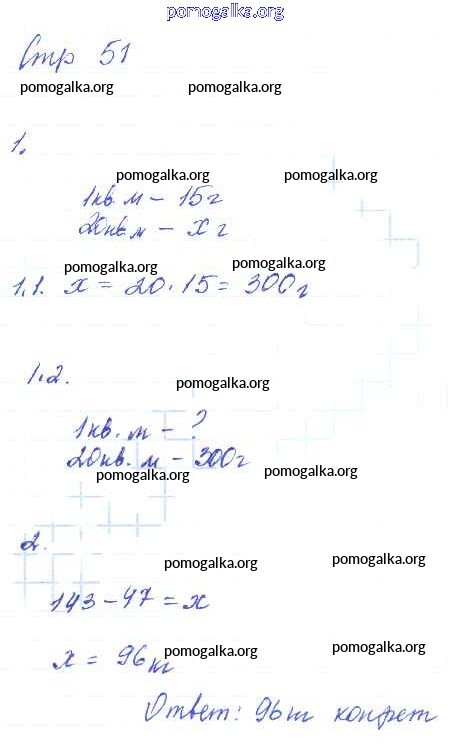 pomogalka.org
Стр 51
pomogalka.org pomogalka.org
1.
pomogalka.org pomogalka.org
1кв. м – 15г
20кв. м – x г
pomogalka.org pomogalka.org
1.1. x = 20 · 15 = 300г
1.2. pomogalka.org
1кв. м – ?
20кв. м – 300г pomogalka.org
2.
pomogalka.org pomogalka.org
143 – 47 = x
x = 96кг pomogalka.org pomogalka.org
Ответ: 96кг конфет